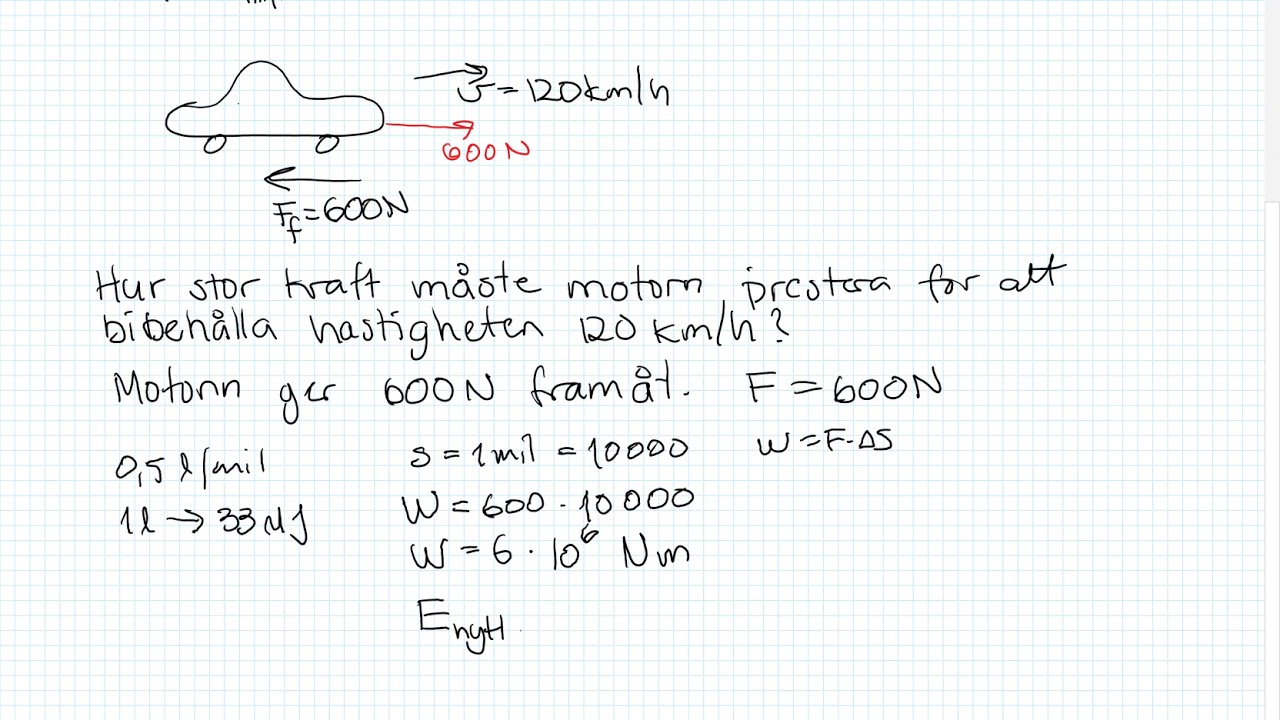 v = 120 km/h
600 N
F_f = 600 N
Hur stor kraft måste motorn prestera för att
bibehålla hastigheten 120 km/h?
Motorn ger 600 N framåt. F = 600 N
0,5 l/mil s = 1 mil = 10000 W = F · Δs
1 l → 33 MJ W = 600 · 10 000
W = 6 · 10⁶ Nm
E_nytt